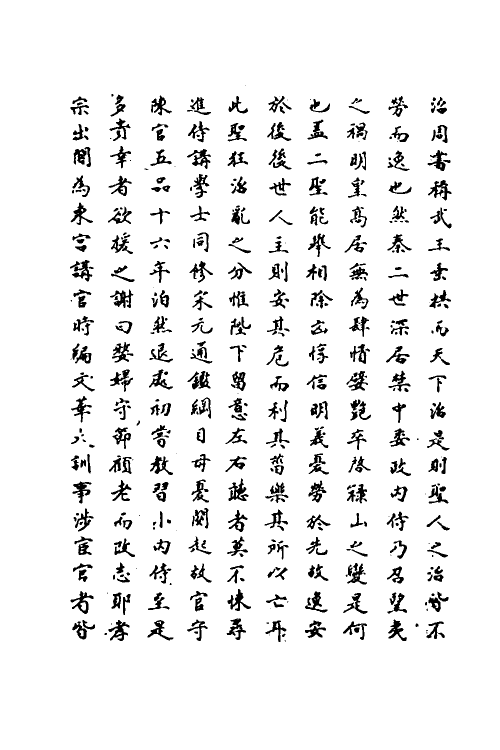 治周書稱武王垂拱而天下治是則聖人之治皆不
勞而逸也然秦二世深居禁中委政内侍乃召望夷
之禍明皇高居無為肆情嬖艶卒啓祿山之變是何
也盖二聖能舉相除凶惇信明義憂勞於先故逸安
於後後世人主則安其危而利其菑樂其所以亡耳
此聖狂治亂之分惟陛下留意左右聽者莫不悚尋
進侍講學士同修宋元通鑑綱目母憂闋起故官守
陳官五品十六年泊然退處初嘗教習小内侍至是
多貴幸者欲援之謝曰嫠婦守節顧老而改志耶孝
宗出閤為東宫講官時編文華大訓事涉宦官者皆